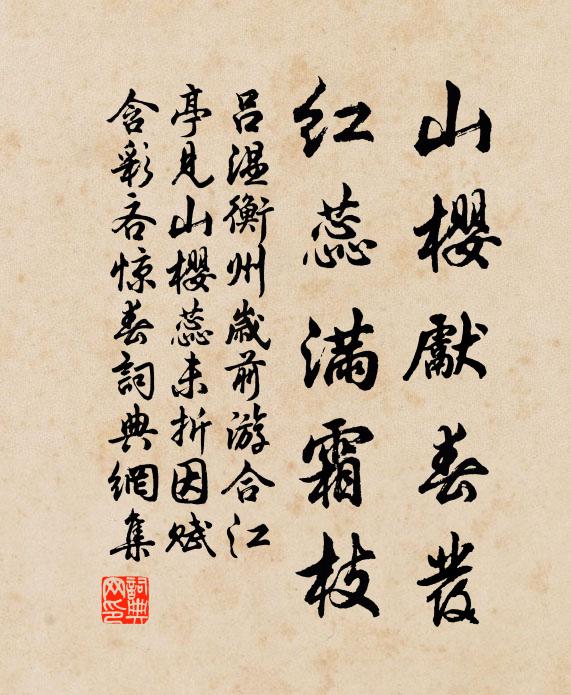 山櫻獻春發
紅蕊滿霜枝
呂溫衡州歲前游合江
亭見山櫻蕊未折因赋
含彩吝惊春詞典網集
詞典網印